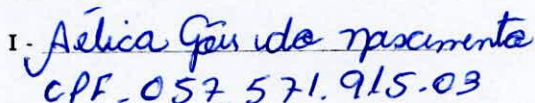 I - Aélica Góis do nascimento
CPF - 057.571.915-03